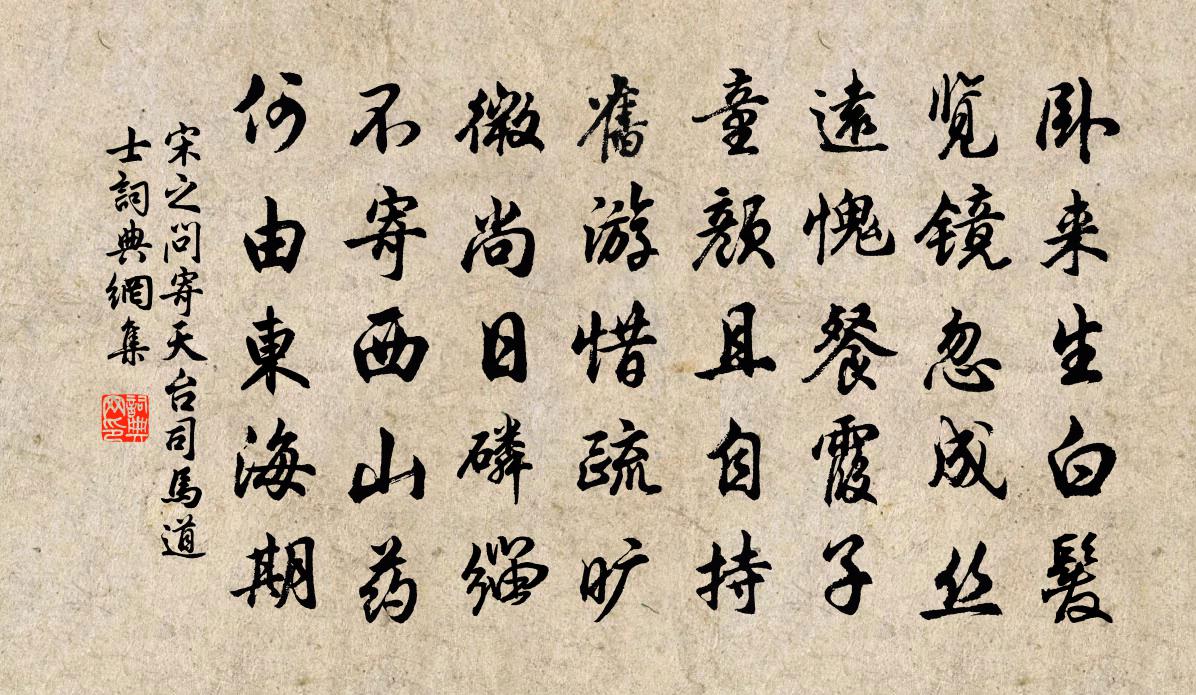 卧来生白髮
览镜忽成丝
遠愧餐霞子
童顔且自持
舊游惜疏旷
微尚日磷缁
不寄西山药
何由東海期
宋之问寄天台司馬道
士詞典網集
詞典网印